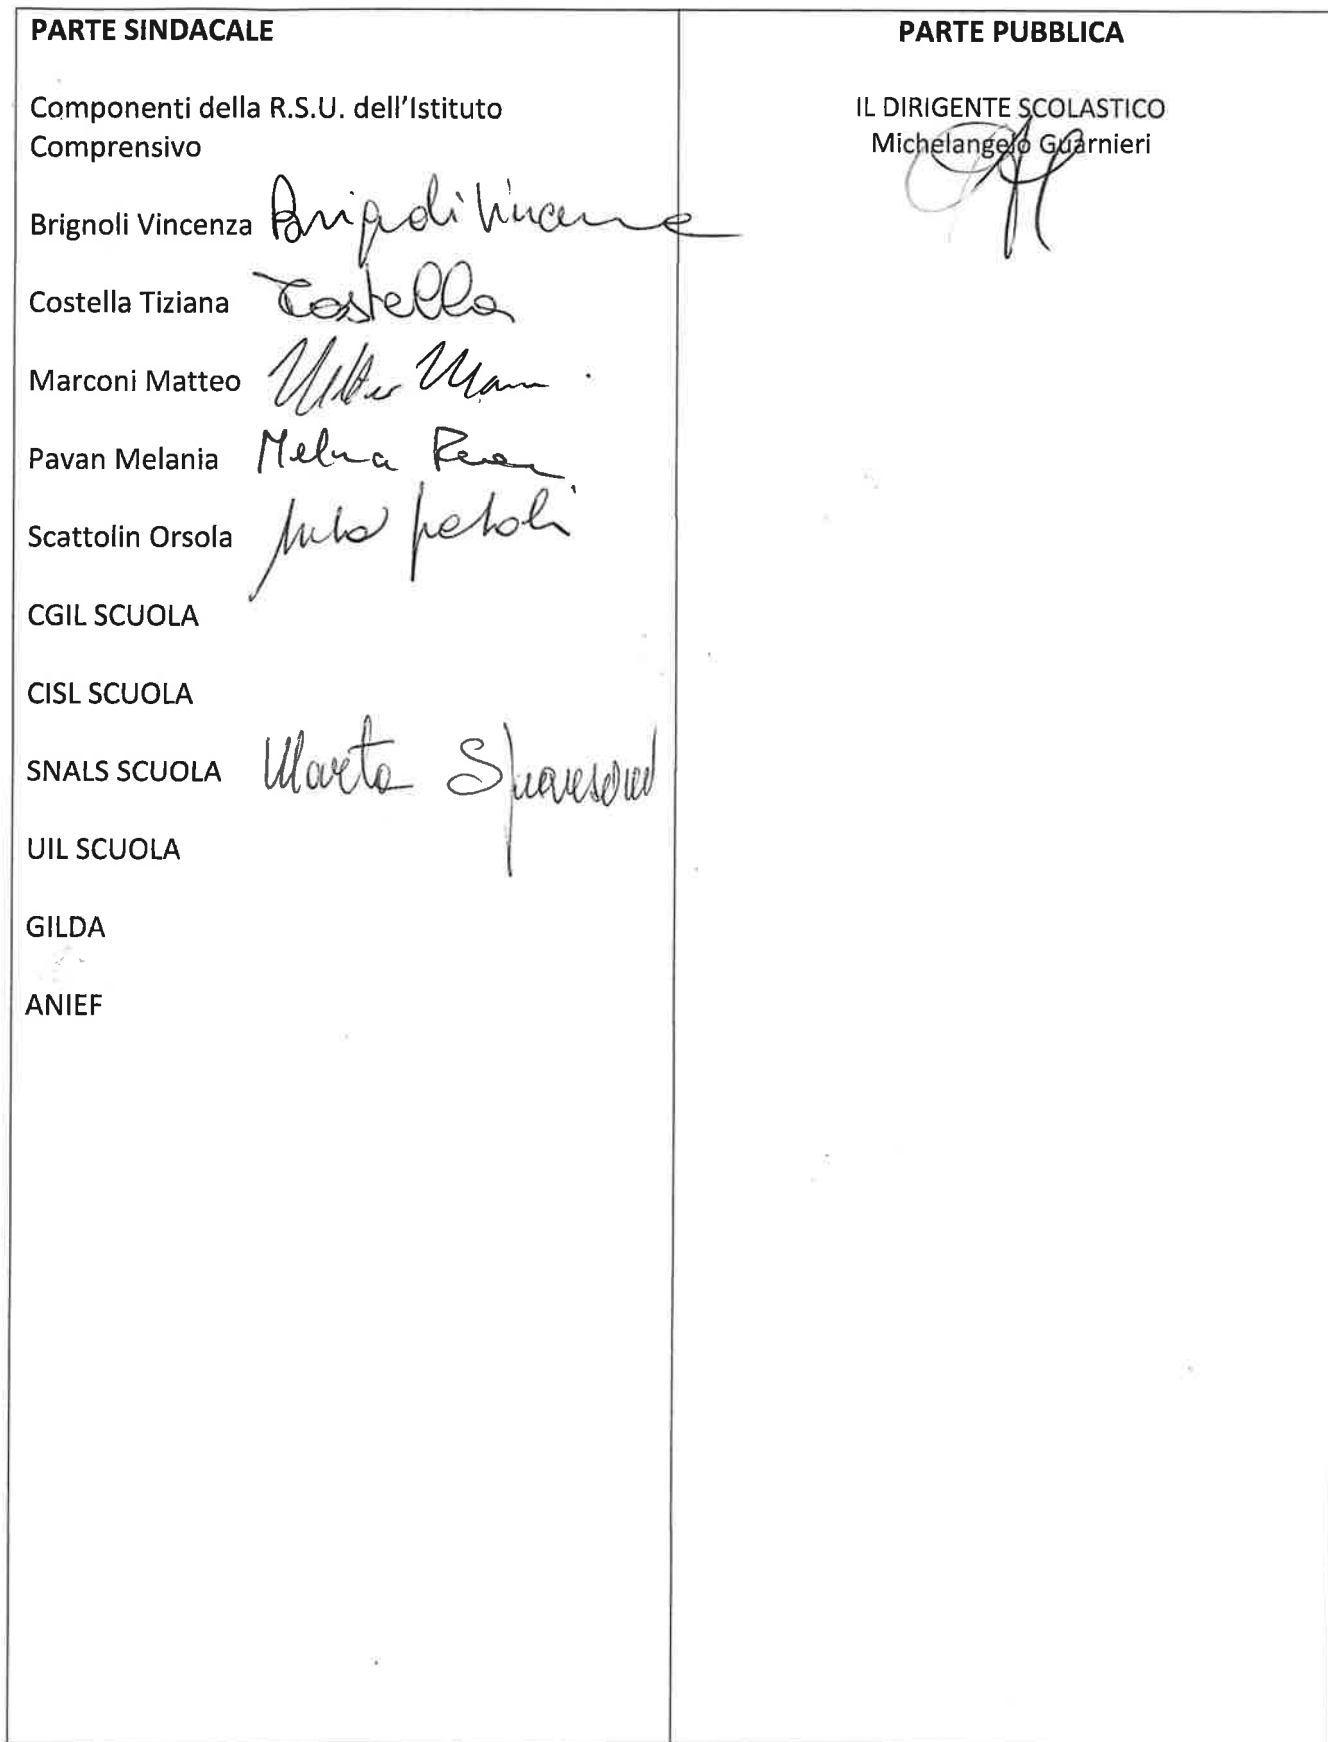 PARTE SINDACALE
Componenti della R.S.U. dell'Istituto
Comprensivo
Brignoli Vincenza Brignoli Vincenza
Costella Tiziana Costella
Marconi Matteo
Pavan Melania
Scattolin Orsola
CGIL SCUOLA
CISL SCUOLA
SNALS SCUOLA Marta
UIL SCUOLA
GILDA
ANIEF
PARTE PUBBLICA
IL DIRIGENTE SCOLASTICO
Michelangelo Guarnieri